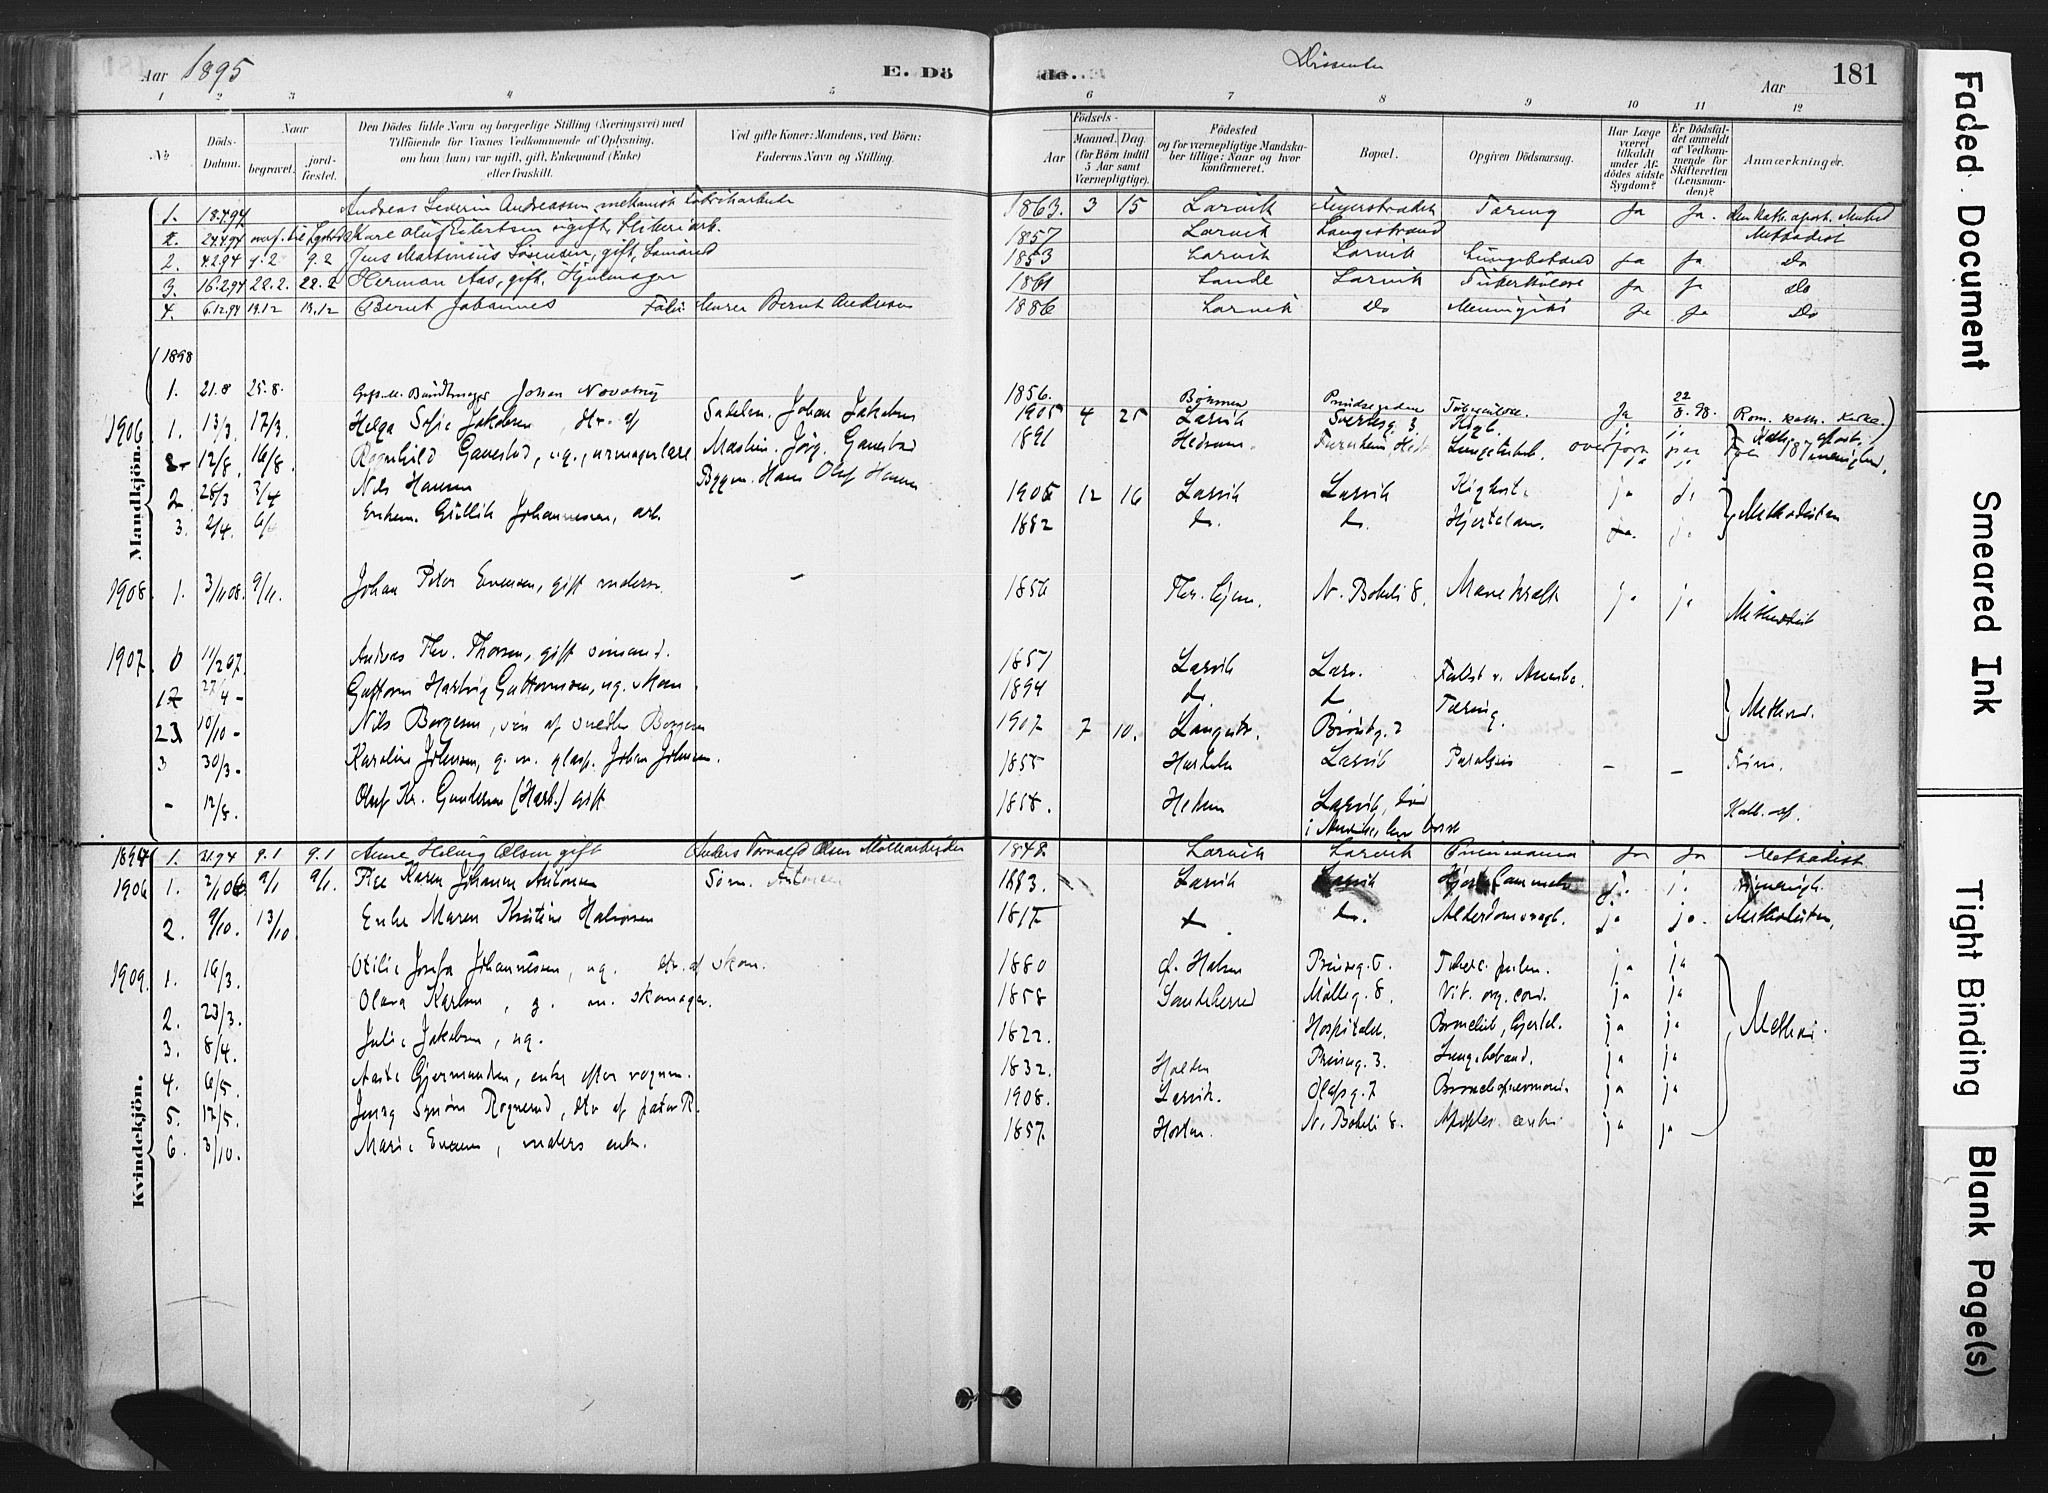 Aar 1895
E. Dö
de.
Dissenter
Aar
181
1 2 3 4 5 6 7 8 9 10 11 12
№
Döds-Datum.
Naar
begravet.
jord-fæstet.
Den Dödes fulde Navn og borgerlige Stilling (Næringsvei) med
Tilföiende for Voxnes Vedkommende af Oplysning,
om han (hun) var ugift, gift, Enkemand (Enke)
eller fraskilt.
Ved gifte Koner: Mandens, ved Börn:
Faderens Navn og Stilling.
Födsels-
Aar
Maaned. Dag.
(for Börn indtil
5 Aar samt
Værnepligtige).
Födested
og for værnepligtige Mandska-
ber tillige: Naar og hvor
konfirmeret.
Bopæl.
Opgiven Dödsaarsag.
Har Læge
været
tilkaldt
under Af-
dödes sidste
Sygdom?
Er Dödsfal-
det anmeldt
af Vedkom-
mende for
Skifteretten
(Lensman-
den)?
Anmærkninger.
Mandkjön.
1. 18.4.94 Andreas Severin Andreassen mekanisk Fabrikarbeider 1863. 3 15 Larvik Tæring Ja Ja. den kath. apost. Menhed
24.4.94 Karl Oluf Eilertsen ugift, 1857 Larvik Langestrand Methodist
2. 4.2.94 9.2 9.2 Jens Martinius Sörensen, gift, Sömand 1853 Larvik Larvik Lungebetænd ja ja Do
3. 16.2.94 22.2. 22.2 Herman Aas, gift, Hjulmager 1861 Sande Larvik Tuberkulose ja ja Do
4. 6.12.94 13.12 13.12 Bernt Johannes Fader: Murer Bernt Andersen 1886 Larvik Do Meningitis Ja Ja Do
1898
1. 21.8 25.8. Gift. Bundtmager Johan Novotny 1856. Böhmen Prindsegaden Tuberculose. Ja 22/8.98. Rom. kath. Kirke.
1906 1. 13/3. 17/3. Helga Sofie Jakobsen, dtr. af Sadelm. Johan Jakobsen 1905 4 25 Larvik Sverresg. 3 Kigh. ja ja
12/8. 16/8. Ragnhild Gavestad, ug., Maskin. Jörg. Gavestad 1891 Hedrum Lungetub. Kath. apost. menighed.
2 28/3 3/4 Nils Hansen Bygm. Hans Olaf Hansen 1905 12 16 Larvik Larvik Kighoste ja ja Methodisten
3. 2/4. 6/4 Enkem. Gullik Johannessen, arb. 1882 do. do. Hjertelam. ja. ja
1908. 1. 3/11 08. 9/11. Johan Peter Evensen, gift snedker - 1856 Fhr. hjem. N. Bökeli 8. Mavekræft ja ja Methodist
1907. 0 11/2 07. Andreas Chr. Thorsen, gift sömand. 1851 Larvik Larv.
17 27/4 - Guttorm Hartvig Guttormsen, ug. skom. 1894 do. do Tæring. Method.
23 10/10 - Nils Borgesen, sön af snedker Borgesen 1907 7 10. Langestr.
3 30/3. Karoline Johnsen, g. m. glasp. Johan Johnsen. 1855 Larvik Paralysis - - Frim.
- 12/8. Olaf Kr. Gundersen (Harb.) gift 1858. Hedrum Larvik, död Kath. ap.
Kvindekjön.
1894 1. 3.1.94 9.1 9.1 Anne Helvig Olsen gift Anders Torvald Olsen Möllearbeider 1848 Larvik Larvik Pneumonia Ja Ja Methodist
1906 1. 2/1 06 9/1 9/1. Pige Karen Johanne Antonsen Söm. Antonsen 1883. Larvik Larvik ja. ja. Frimenigh.
2. 9/10. 13/10 Enke Maren Kristine Halvorsen 1817 do. do. Alderdomssvagh. ja ja. Methodisten.
1909. 1. 16/3. Otilie Josefa Johannessen, ug. dtr. af skom. 1880 Ö. Halsen Prinseg. 5. Tuberc. pulm. ja ja Method.
2. 23/3. Olava Karlsen, g. m. skomager. 1858 Sandeherred Mölleg. 8. Vit. org. cord. ja ja
3. 8/4. Julie Jakobsen, ug. 1822. Hospitalet. Bronchit, Hjertel. ja ja
4. 6/5. Aaste Gjermundsen, enke efter vognm. 1832. Holden Prinseg. 3. Lungebetænd. ja ja
5. 12/5. Jenny Synöve Rognerud, dtr af pastor R. 1908. Larvik. Olafsg. 7 Bronchopneumoni. ja ja
6. 3/10. Marie Evensen, snedkers enke. 1857. Horten. N. Bökeli 8. Apoplex. cerebri ja ja
Faded Document
Smeared Ink
Tight Binding
Blank Page(s)